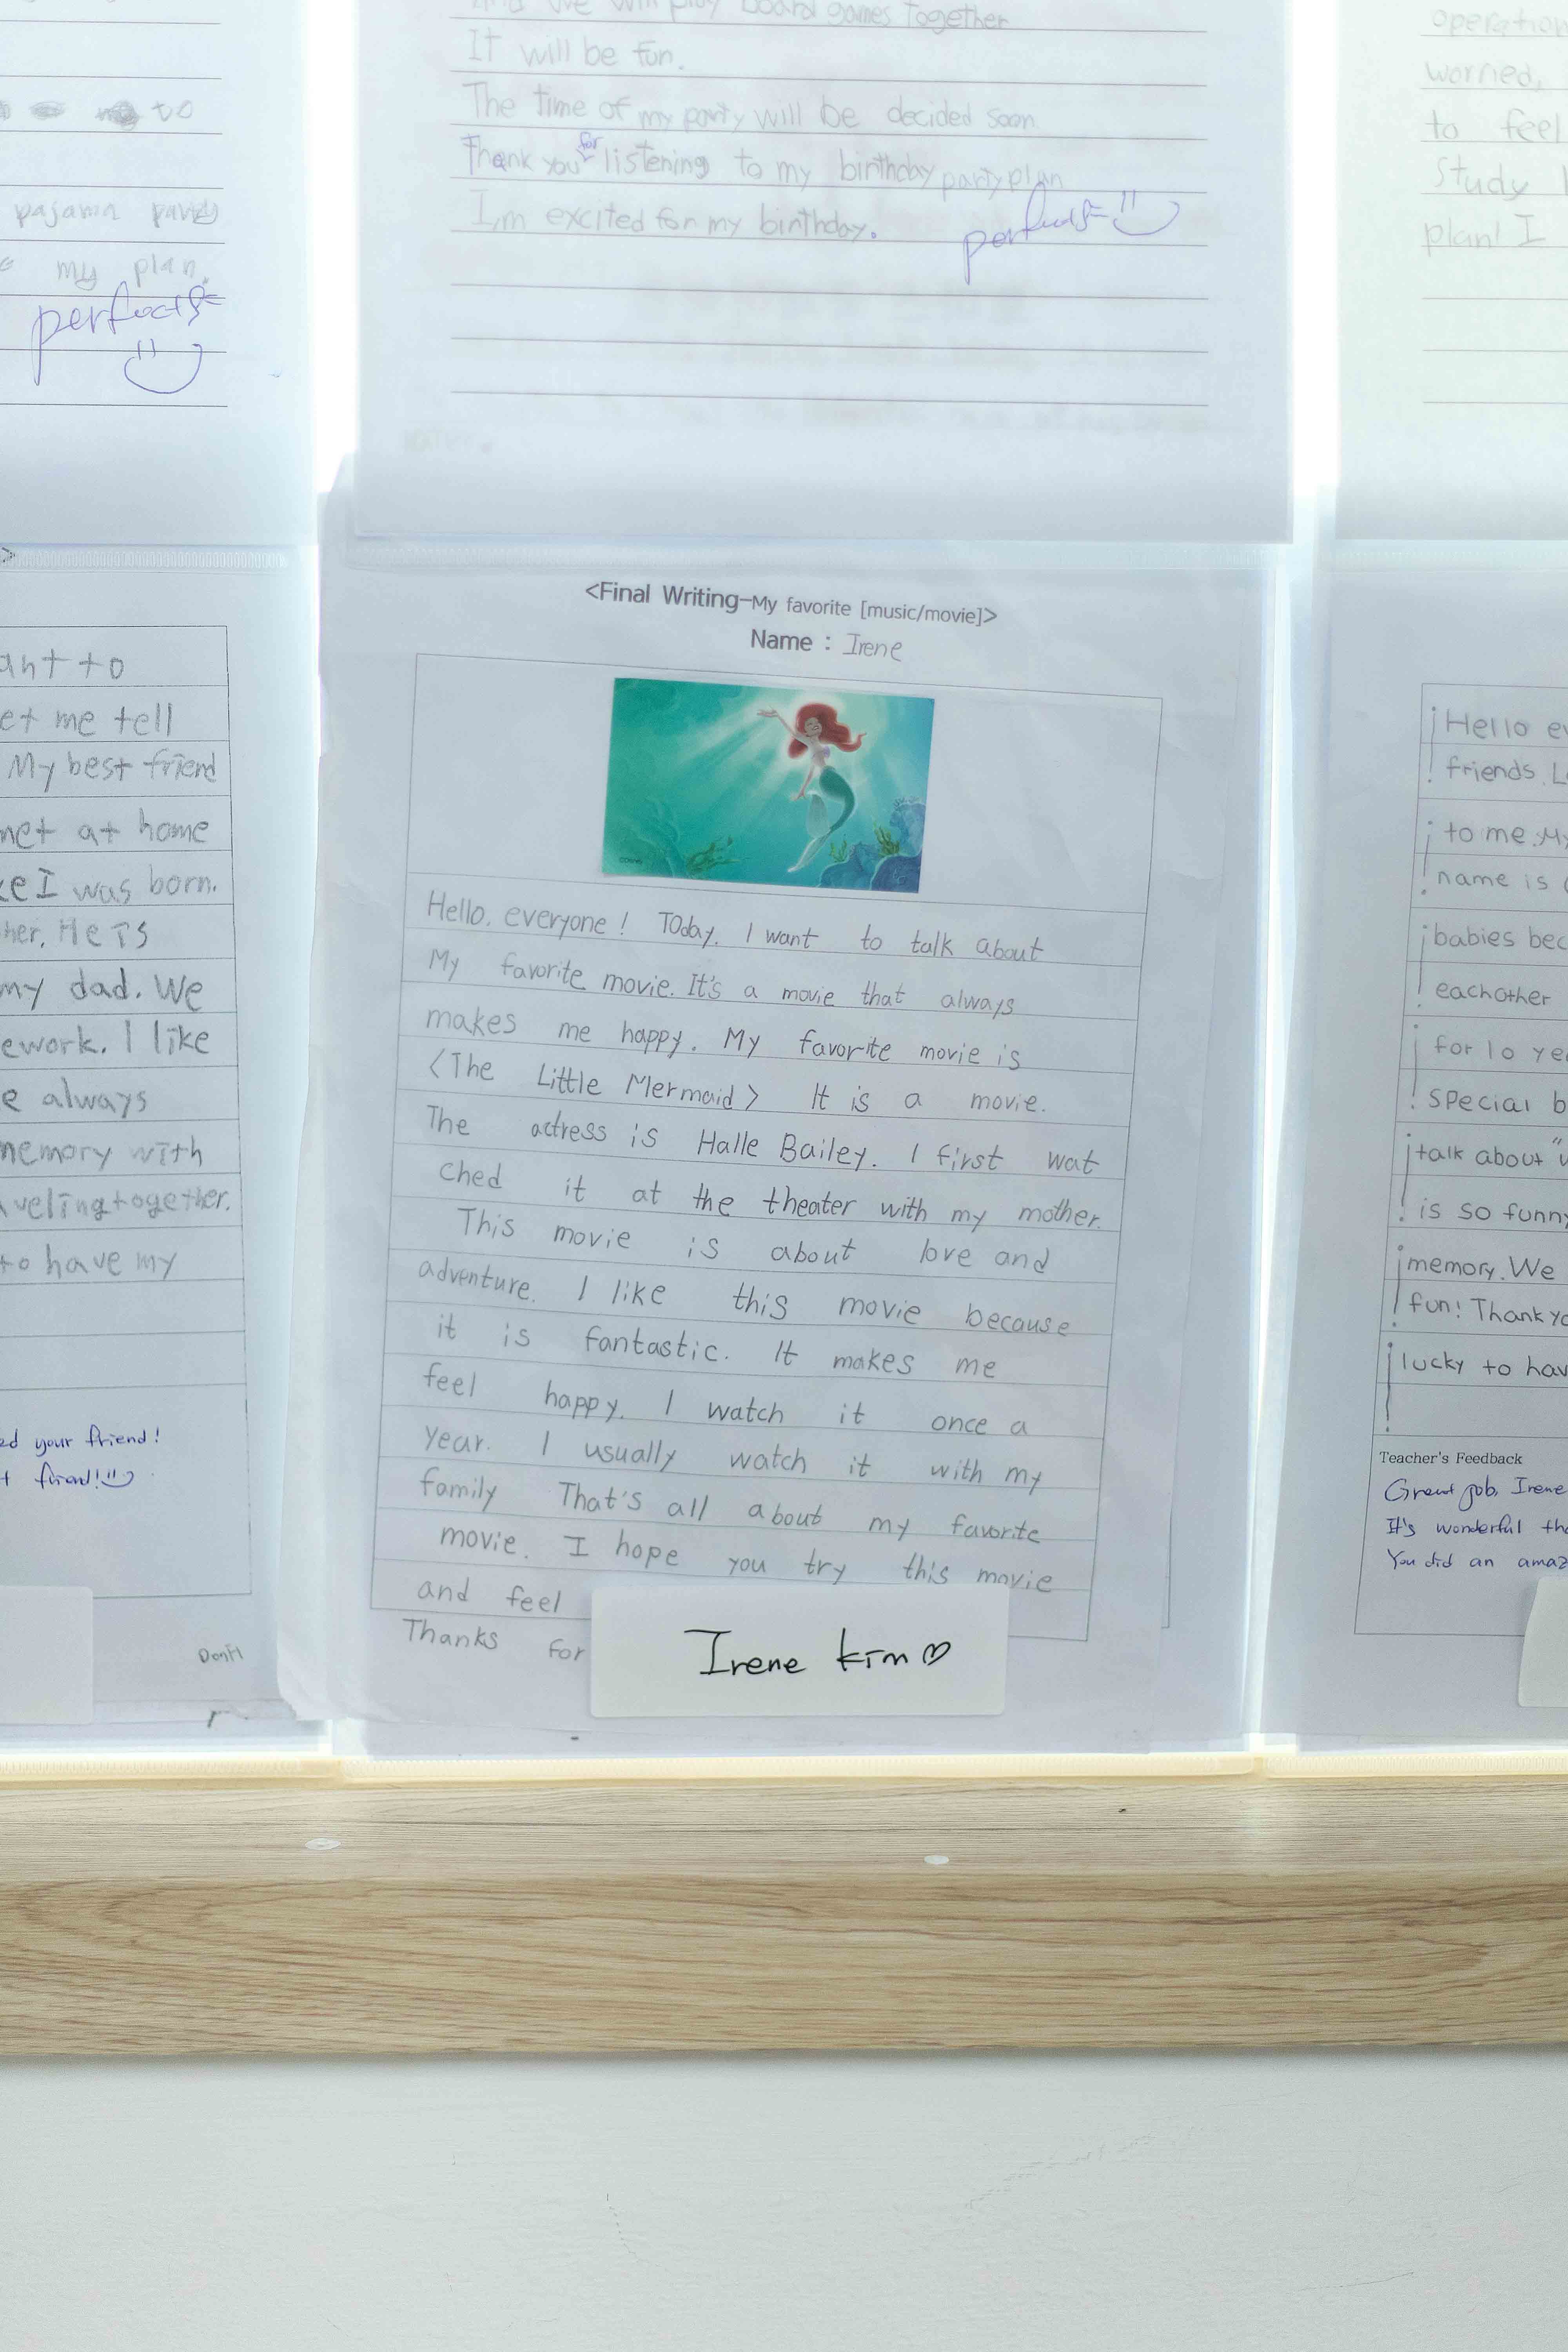 board games together
It will be fun.
The time of my party will be decided soon
Thank you for listening to my birthday party plan
I,m excited for my birthday.
perfect
to
pajama party
my plan.
perfect
operation
worried,
to feel
study
plan! I
<Final Writing-My favorite [music/movie]>
Name : Irene
Hello. everyone! TOday. I want to talk about
My favorite movie. It's a movie that always
makes me happy. My favorite movie is
<The Little Mermaid> It is a movie.
The actress is Halle Bailey. I first wat
ched it at the theater with my mother.
This movie is about love and
adventure. I like this movie because
it is fantastic. It makes me
feel happy. I watch it once a
year. I usually watch it with my
family That's all about my favorite
movie. I hope you try this movie
and feel
Thanks for
Irene kim♡
to
me tell
My best friend
at home
I was born.
He is
my dad. We
I like
always
memory with
together.
to have my
your friend!
friend!
Don't
Hello
friends.
to me. My
name is
babies
eachother
for 10
special
talk about
is so funny
memory. We
fun! Thank
lucky to
Teacher's Feedback
Great job, Irene
It's wonderful
You did an